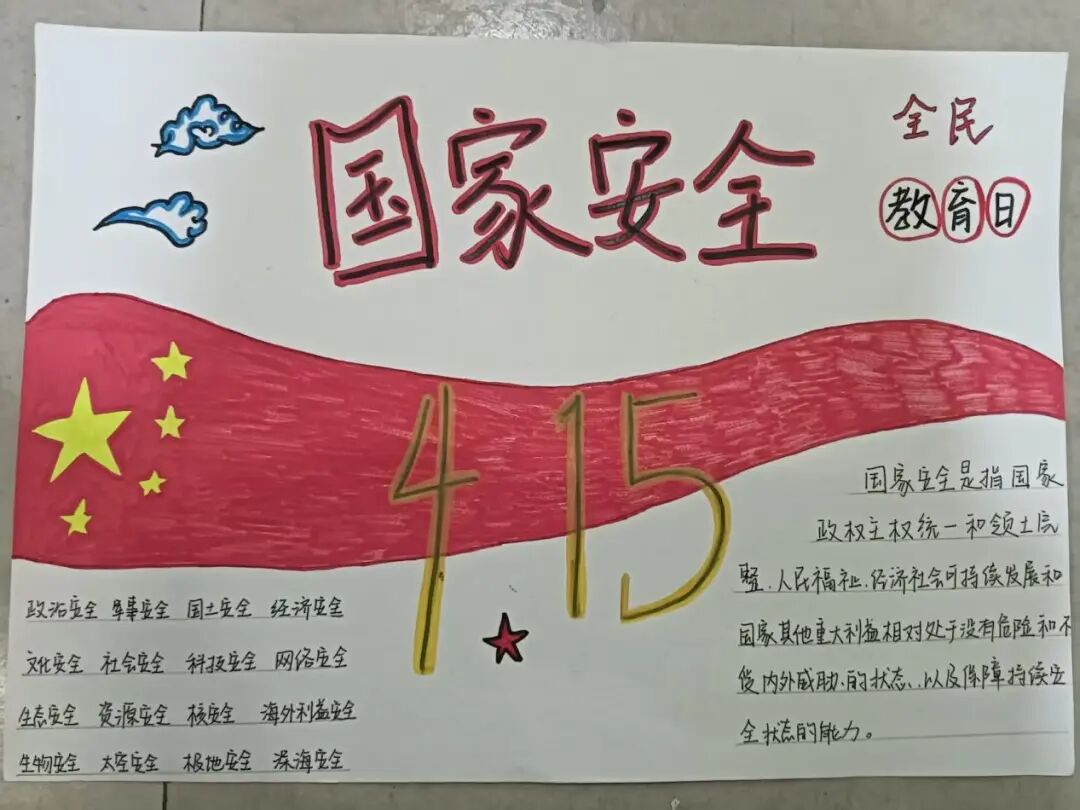 国家安全
全民
教育日
4.15
政治安全 军事安全 国土安全 经济安全
文化安全 社会安全 科技安全 网络安全
生态安全 资源安全 核安全 海外利益安全
生物安全 太空安全 极地安全 深海安全
国家安全是指国家
政权主权统一和领土完
整、人民福祉、经济社会可持续发展和
国家其他重大利益相对处于没有危险和不
受内外威胁的状态、以及保障持续安
全状态的能力。